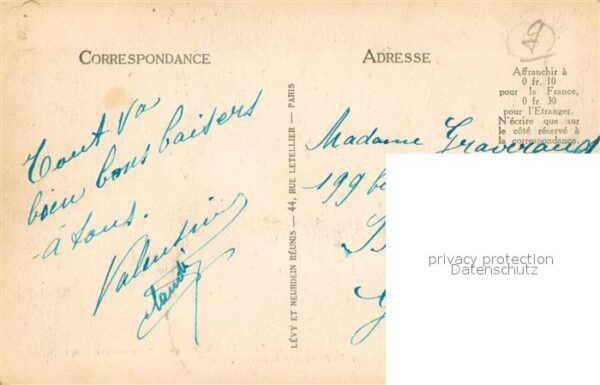 CORRESPONDANCE
Tout va
bien bons baisers
à tous.
Valentin
LÉVY ET NEURDEIN RÉUNIS — 44, RUE LETELLIER — PARIS
ADRESSE
Affranchir à
0 fr. 10
pour la France,
0 fr. 30
pour l'Etranger.
N'écrire que sur
le côté réservé à
la correspondance.
Madame
199 b
privacy protection
Datenschutz